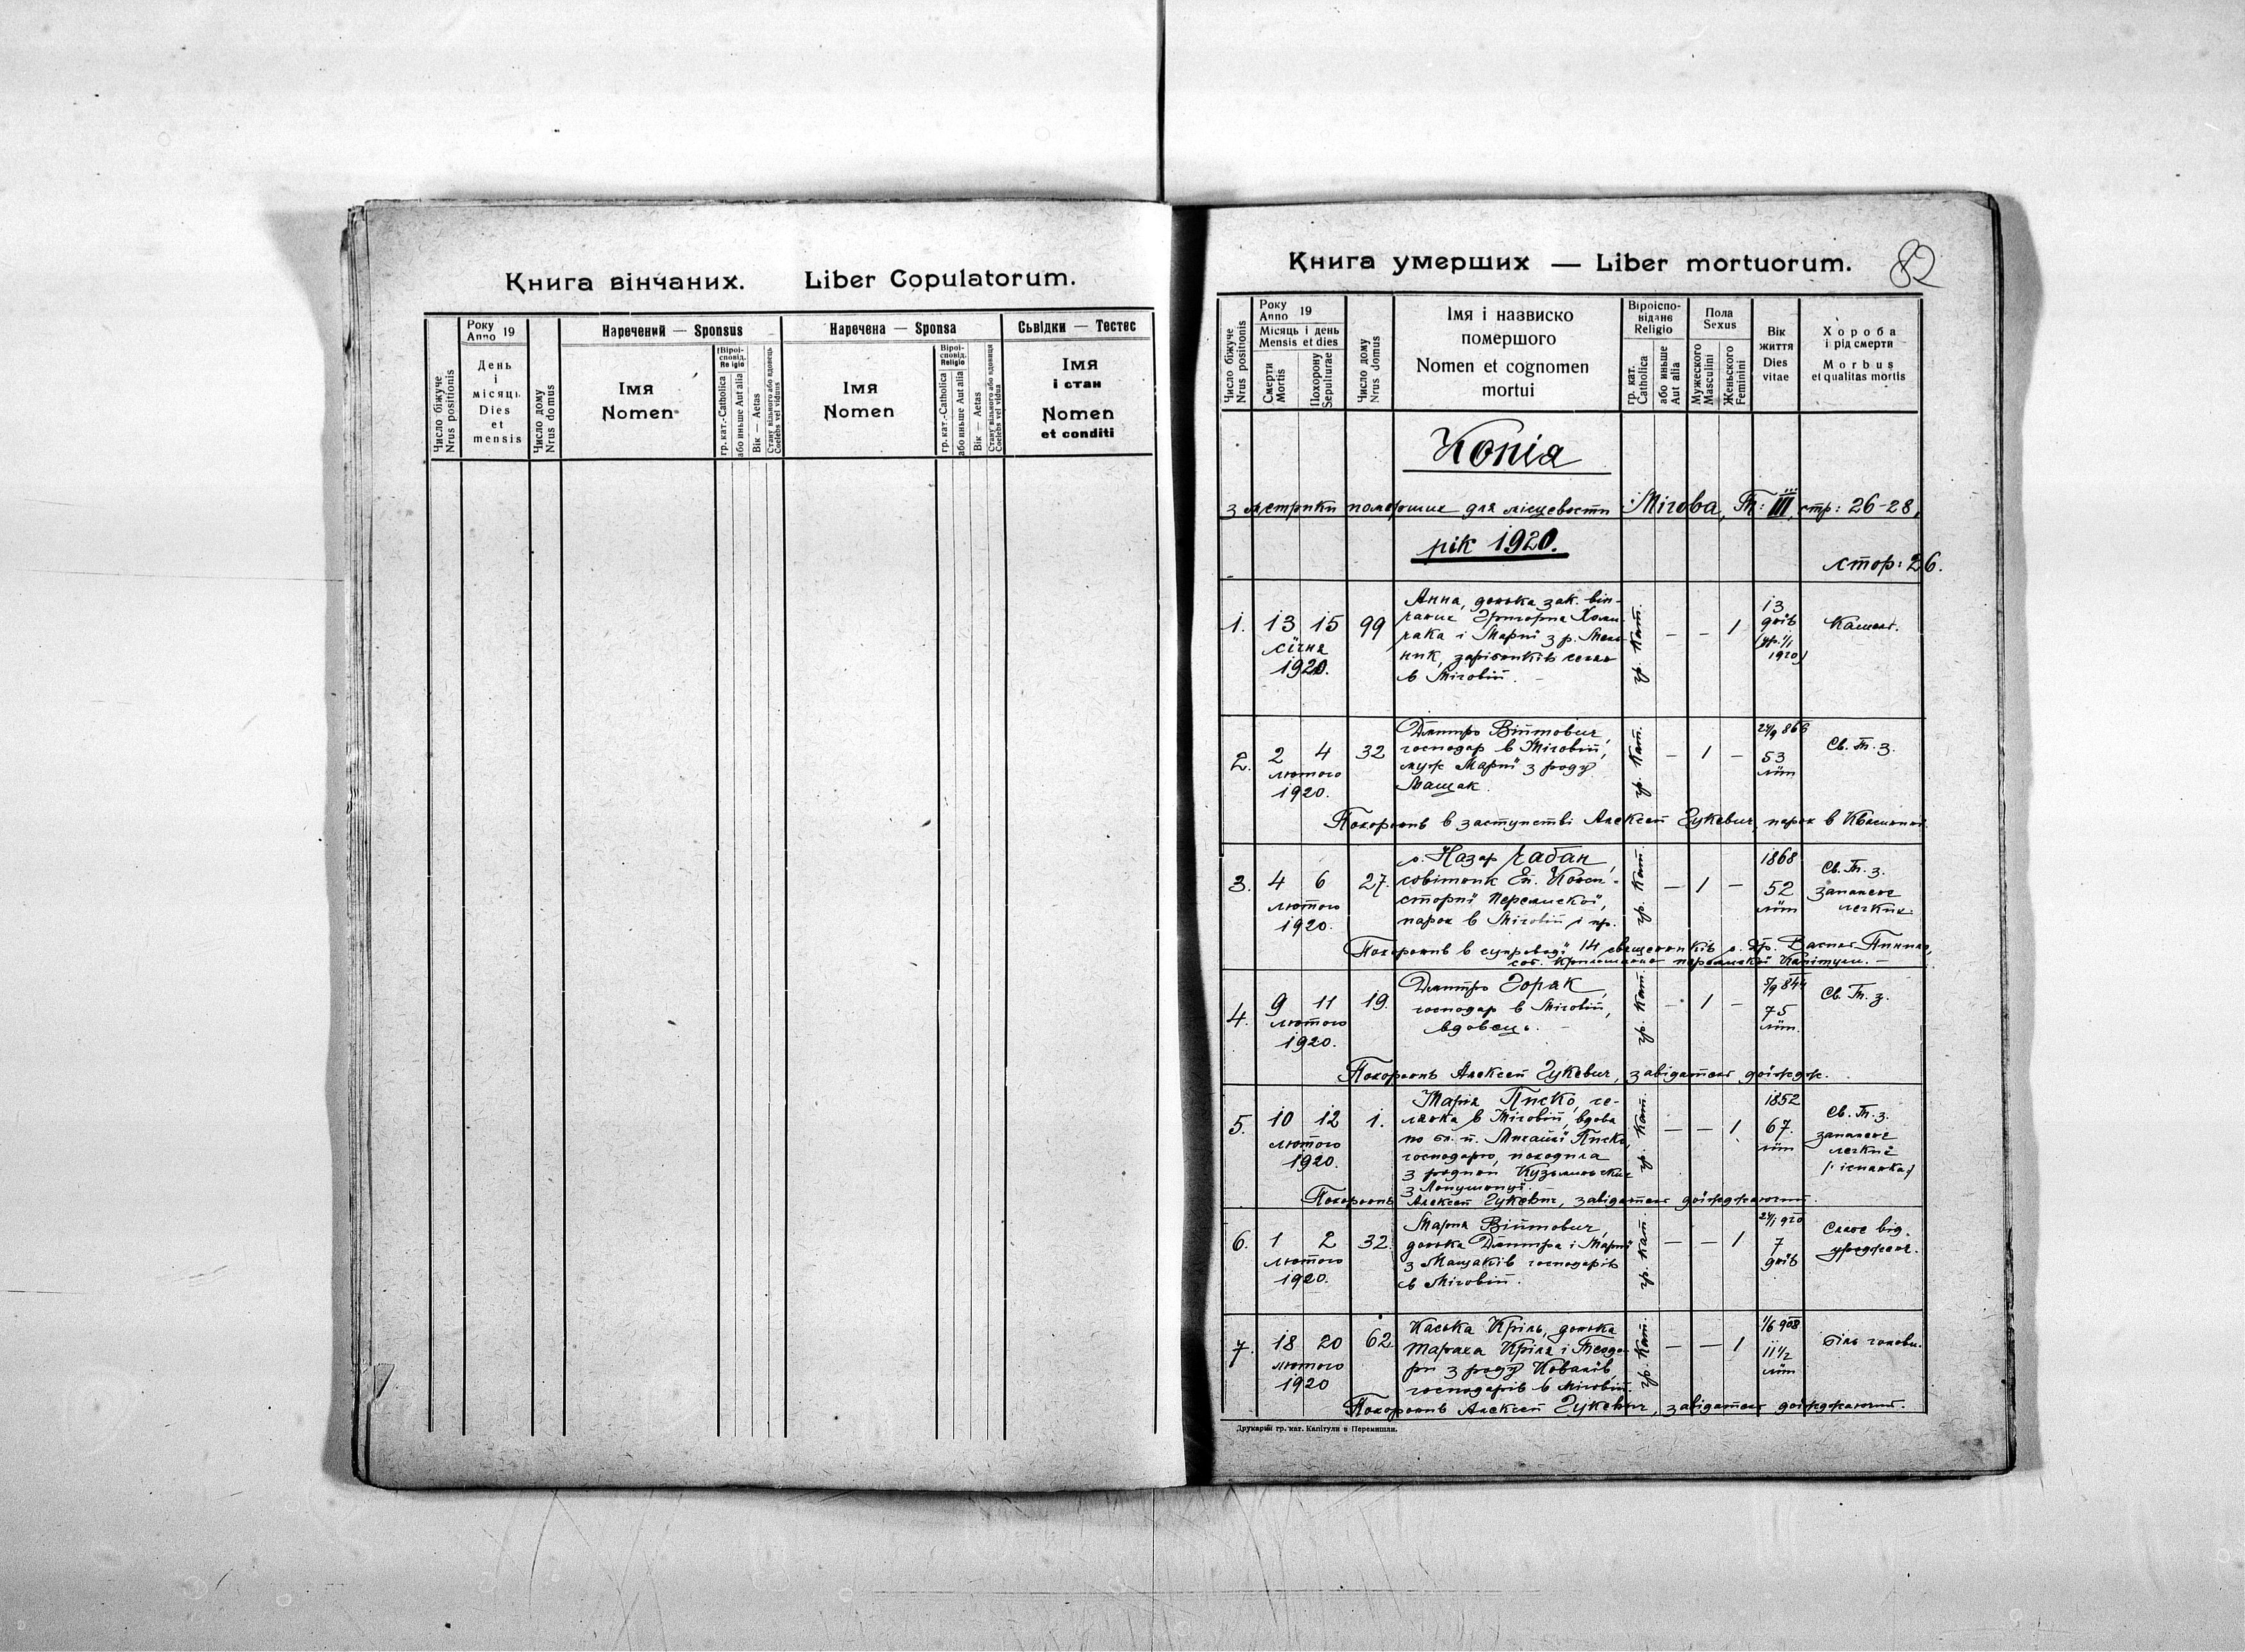 Книга вінчаних. Liber Copulatorum.
Число біжуче
Nrus positionis
Року
Anno 19
День
і
місяць
Dies
et
mensis
Число дому
Nrus domus
Наречений — Sponsus
Імя
Nomen
Віроі-
сповід.
Religio
гр. кат.-Catholica
або иньше Aut alia
Вік — Aetas
Стану вільного або вдовець
Coelebs vel vidus
Наречена — Sponsa
Імя
Nomen
Віроі-
сповід.
Religio
гр. кат.-Catholica
або иньше Aut alia
Вік — Aetas
Стану вільного або вдовиця
Coelebs vel vidua
Сьвідки — Тестес
Імя
і стан
Nomen
et conditi
Книга умерших — Liber mortuorum.
82
Число біжуче
Nrus positionis
Року
Anno 19
Місяць і день
Mensis et dies
Смерти
Mortis
Похорону
Sepulturae
Число дому
Nrus domus
Імя і назвиско
помершого
Nomen et cognomen
mortui
Віроіспо-
відане
Religio
гр. кат.
Catholica
або иньше
Aut alia
Пола
Sexus
Мужеского
Masculini
Женьского
Feminini
Вік
життя
Dies
vitae
Хороба
і рід смерти
Morbus
et qualitas mortis
Копія
з метрики померших для місцевости Мігова, Т: III, стр: 26-28,
рік 1920.
стор: 26.
1. 13 15 99
січня
1920.
Анна, донька зак. він-
чаних Григорія
і Марії з р.
в Міговій.
гр. кат. — — 1
13
днів
(ур. 1/1
1920)
Кашель.
2. 2 4 32
лютого
1920.
Дмитро Війтович,
господар в Міговій,
муж Марії з роду
Мацак.
гр. кат. — 1 —
24/9 866
53
літ
Св. Т. з.
Похоронив в заступстві Алексей Гукевич, парох в
3. 4 6 27.
лютого
1920.
о. Назар Чабан,
совітник Еп. Конси-
сторії Перемискої,
парох в Міговій і пр.
гр. кат. — 1 —
1868
52
літ
Св. Т. з.
запалене
легких.
Похоронив в супроводі 14 священиків о. Др. Василь
перемиської Капітули. —
4. 9 11 19.
лютого
1920.
Дмитро Горак,
господар в Міговій,
вдовець. —
гр. кат. — 1 —
5/9 844
75
літ.
Св. Т. з.
Похоронив Алексей Гукевич, завідатель доїждж.
5. 10 12 1.
лютого
1920.
Марія Писко, се-
лянка в Міговій, вдова
по бл. п. Михайлі Писко,
господарю, походила
з родини
з
гр. кат. — — 1
1852
67.
літ
Св. Т. з.
запалене
легких
(: іспанка :)
Похоронив Алексей Гукевич, завідатель доїжджаючий.
6. 1 2 32.
лютого
1920.
Марія Війтович,
донька Дмитра і Марії
з Мацаків господарів
в Міговій.
гр. кат. — — 1
24/1 920
7
днів
Слабе від
уродження.
7. 18 20 62.
лютого
1920
Каська Кріль, донька
Тараха Кріля і Теодо-
ри з роду Ковалів,
господарів в Міговій.
гр. кат. — — 1
1/6 908
11½
літ
біль голови.
Похоронив Алексей Гукевич, завідатель доїжджаючий.
Друкарня гр. кат. Капітули в Перемишли.